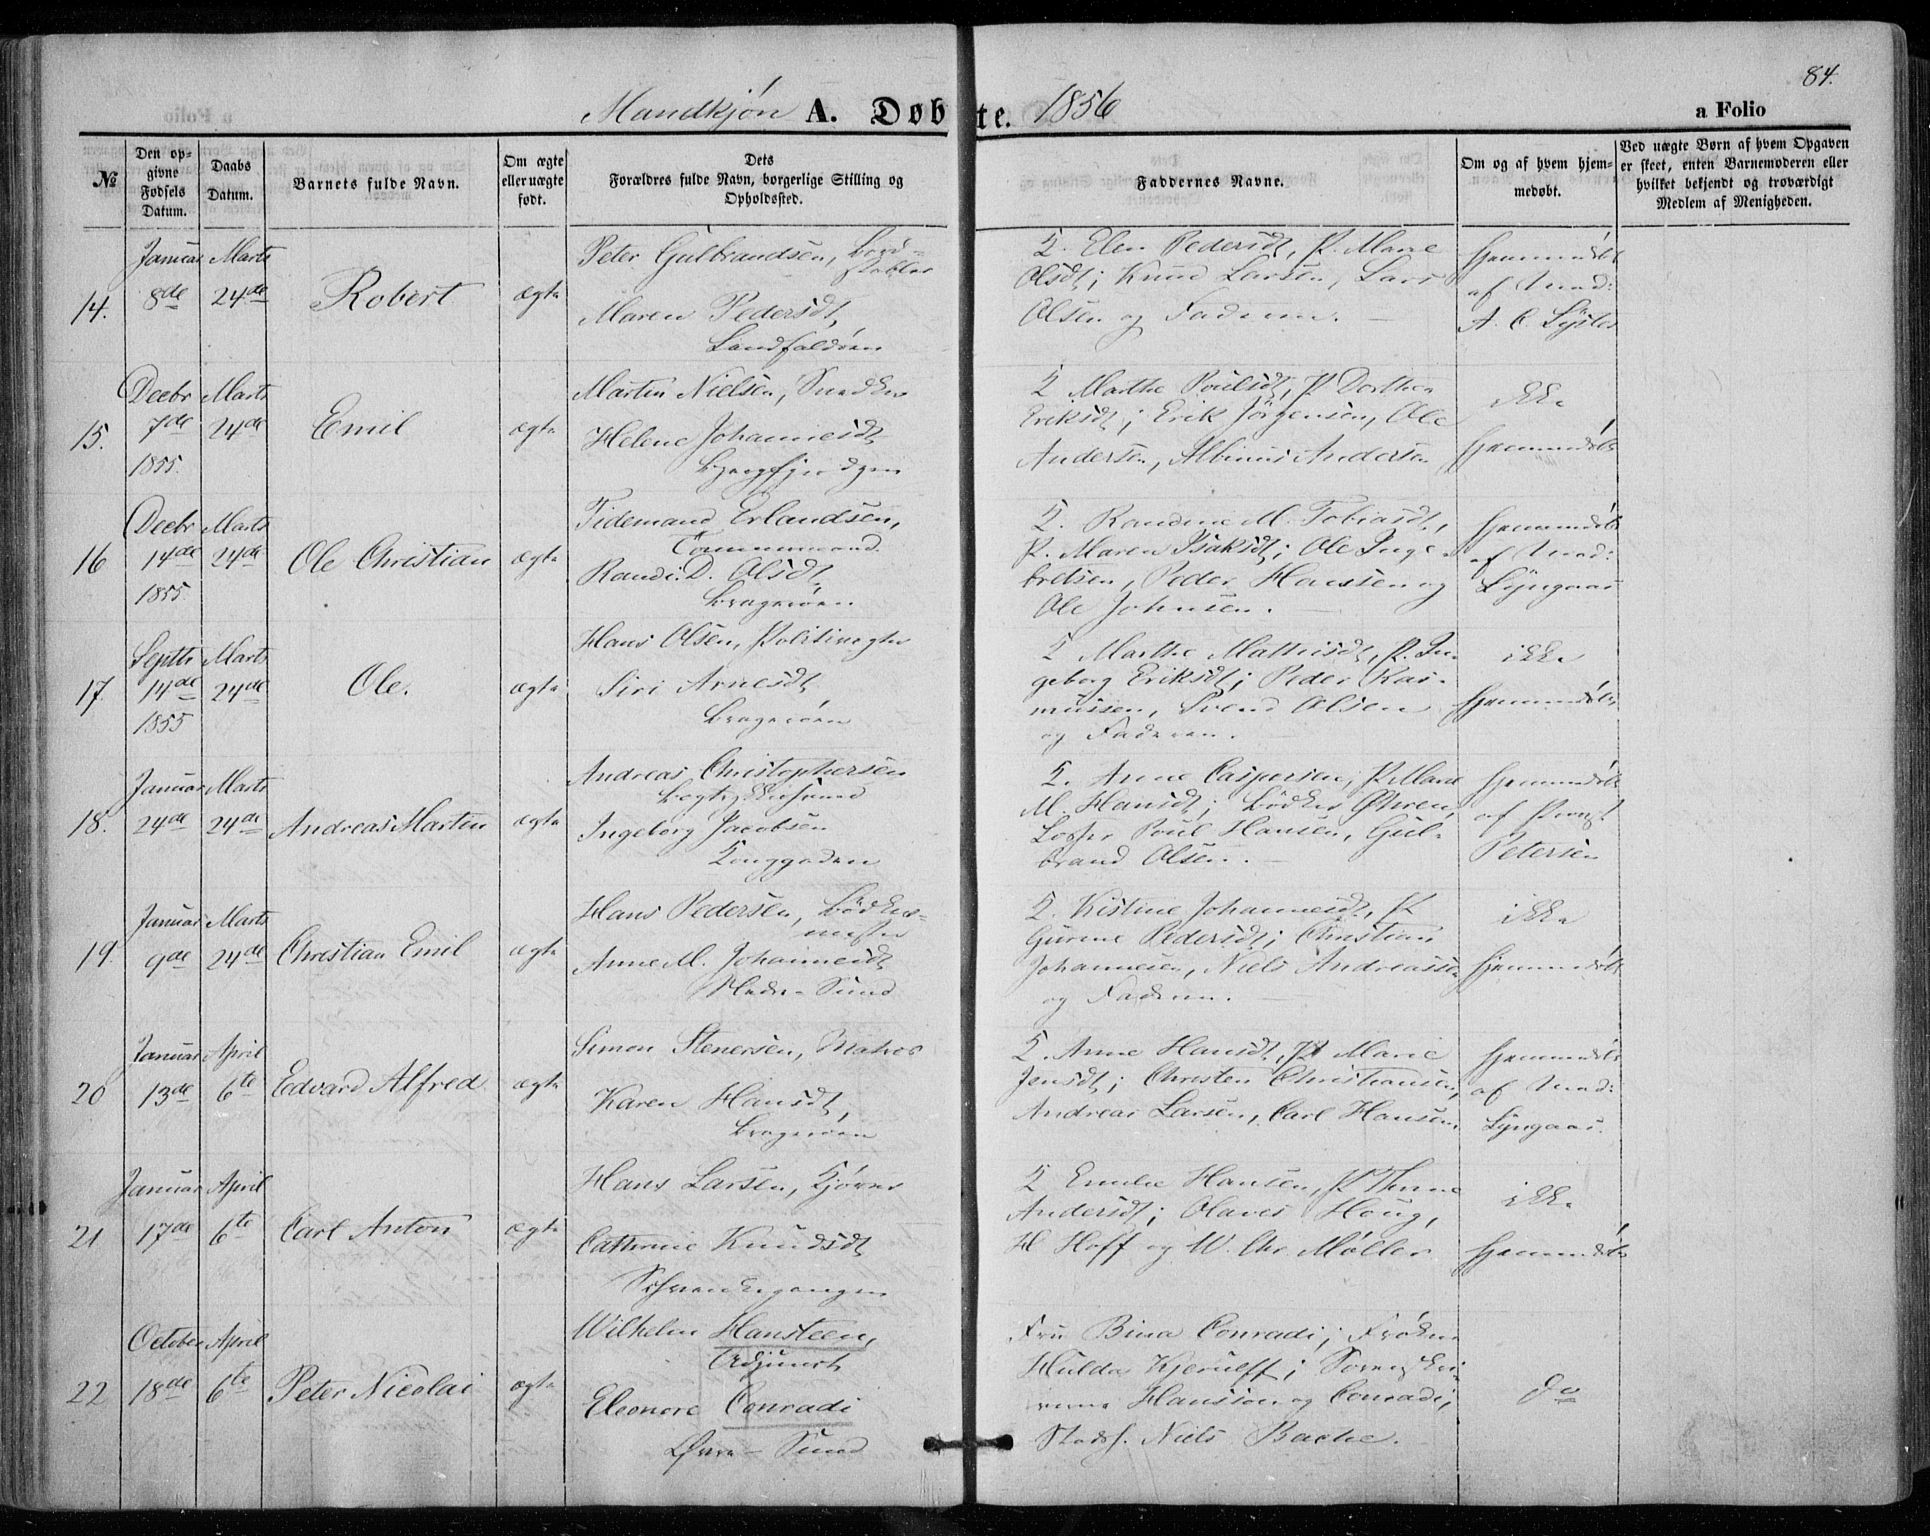 84.
Mandkjøn A. Døbte. 1856
a Folio
№
Den op-
givne
Fødsels
Datum.
Daabs
Datum.
Barnets fulde Navn.
Om ægte
eller uægte
født.
Dets
Forældres fulde Navn, borgerlige Stilling og
Opholdssted.
Faddernes Navne.
Om og af hvem hjem-
medøbt.
Ved uægte Børn af hvem Opgaven
er skeet, enten Barnemoderen eller
hvilket bekjendt og troværdigt
Medlem af Menigheden.
14.
Januar
8de
Marts
24de
Robert
ægte
Peter Gulbrandsen,
Maren Pedersdt,
Landfaldøen
Q. Elen Pedersdt, P. Marie
Olsdt; Knud Larsen, Lars
Olsen og Faderen.
Hjemmedøbt
af Mad:
A. C. Lysto
15.
Decbr
7de
1855
Marts
24de
Emil
ægte
Martin Nielsen, Snedker
Helene Johannesdt
Q Marthe Poulsdt, P Dorthea
Eriksdt; Erik Jörgensen, Ole
Andersen, Albinus Andersen
ikke
hjemmedøbt
16
Decbr
14de
1855
Marts
24de
Ole Christian
ægte
Tidemand Erlandsen,
Tømmermand
Randi D. Olsdt,
Bragerøen
Q. Randine M. Tobiasdt,
P. Maren Isaksdt; Ole Inge-
bretsen, Peder Hansen og
Ole Johnsen.
hjemmedøbt
af Mad:
Lyngaas
17.
Septbr
14de
1855
Marts
24de
Ole.
ægte
Hans Olsen, Politivægter
Siri Arnesdt
Bragerøen
Q Marthe Mathisdt, P. In-
geborg Eriksdt; Peder Ras-
mussen, Svend Olsen
og Faderen.
ikke
hjemmedøbt
18.
Januar
24de
Marts
24de
Andreas Martin
ægte
Andreas Christophersen
Ingeborg Jacobsen
Konggaden
Q. Anne Caspersen, P. Marie
M. Hansdt; Bödker Øhren,
Poul Hansen, Gul-
brand Olsen.
hjemmedøbt
af Provst
Petersen
19.
Januar
9de
Marts
24de
Christian Emil
ægte
Hans Pedersen, Bödker-
mester
Anne M. Johannesdt
Nedre Sund
Q. Kistine Johannesdt, P
Gurine Pedersdt; Christian
Johannesen, Niels Andreassen
og Faderen.
ikke
hjemmedøbt
20
Januar
13de
April
6te
Edvard Alfred
ægte
Simon Stenersen, Matros
Karen Hansdt,
Bragerøen
Q. Anne Hansdt, P Marie
Jensdt; Christen Christiansen,
Andreas Larsen, Carl Hansen.
hjemmedøbt
af Mad:
Lyngaas.
21
Januar
17de
April
6te
Carl Anton
ægte
Hans Larsen, Kjører
Cathrine Knudsdt
Schwenkegangen
Q Emilie Hansen, P Thrine
Andersdt; Olaves Houg,
H Hoff og W. Chr Møller
ikke
hjemmedøbt
22
October
18de
April
6te
Peter Nicolai
ægte
Wilhelm Hansteen,
Adjunct
Eleonore Conradi
Øvre Sund
Fru Bina Conradi; Frøken
Hulda Kjerulff; Sorenskri-
verne Hansson og Conradi,
Niels Bache.
do